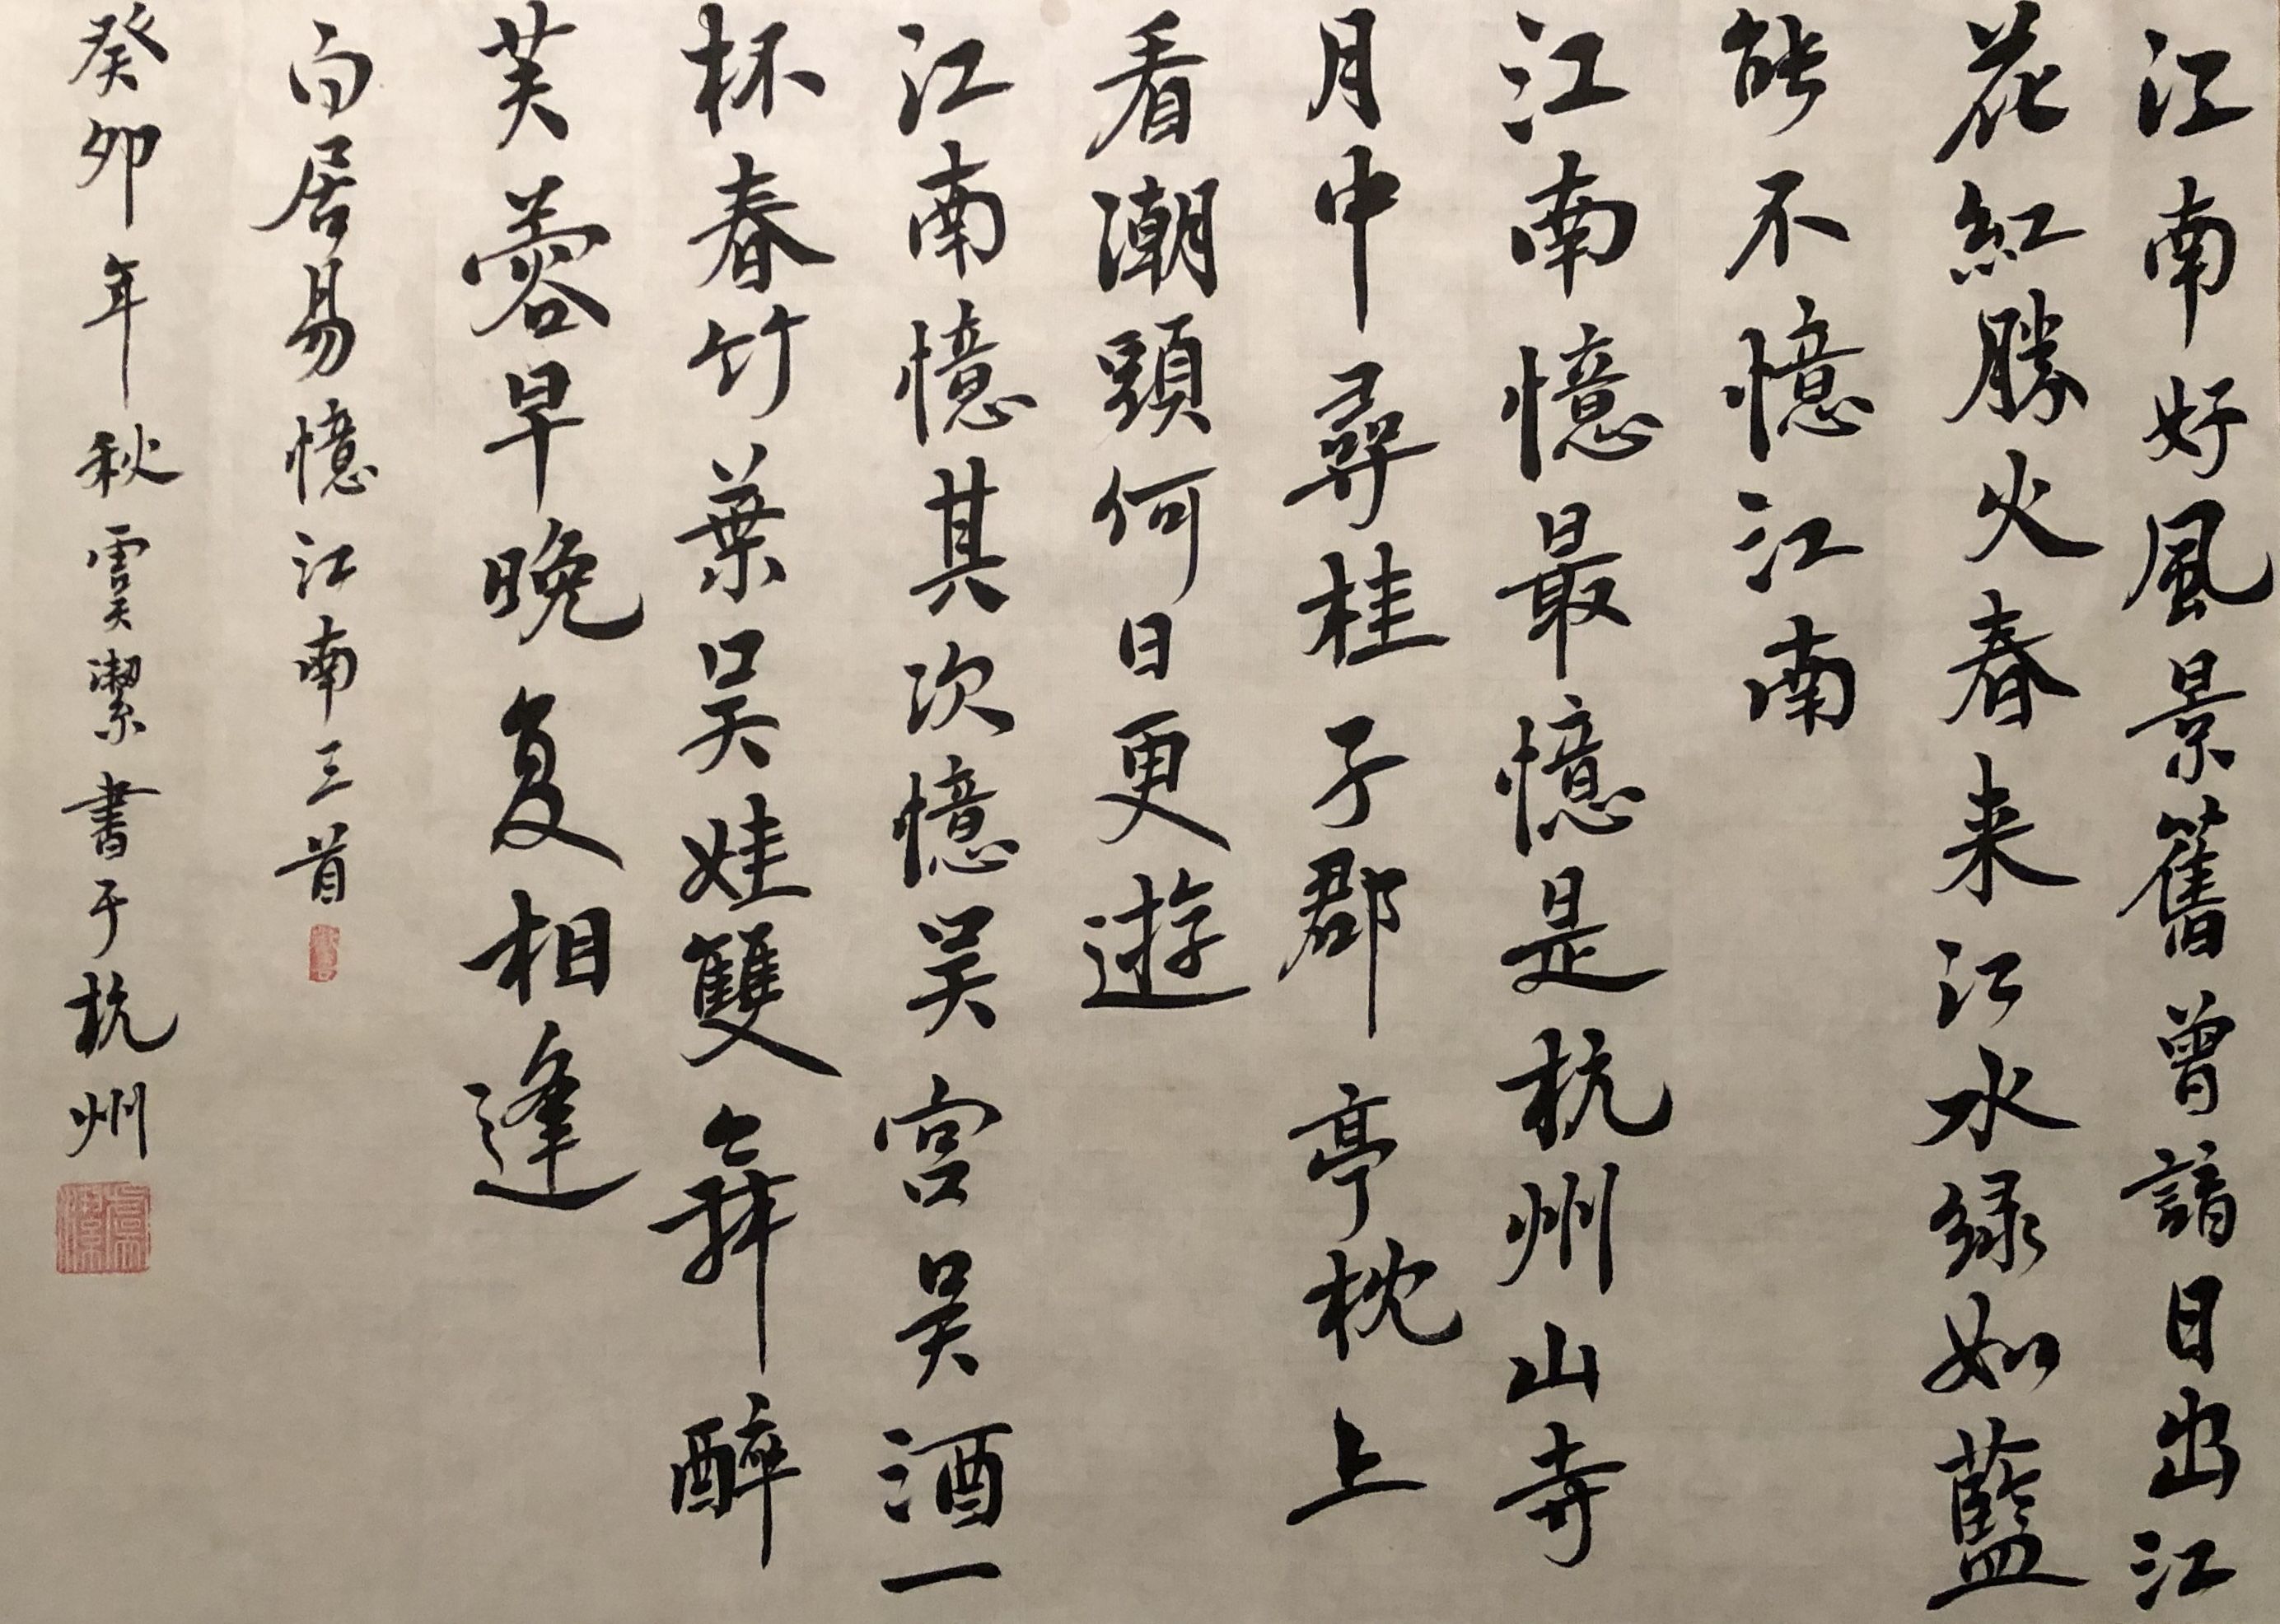 江南好風景舊曾諳日出江
花紅勝火春来江水緑如藍
能不憶江南
江南憶最憶是杭州山寺
月中尋桂子郡亭枕上
看潮頭何日更遊
江南憶其次憶吴宮吴酒一
杯春竹葉吴娃雙舞醉
芙蓉早晚复相逢
白居易憶江南三首
癸卯年秋虞潔書于杭州
虞潔